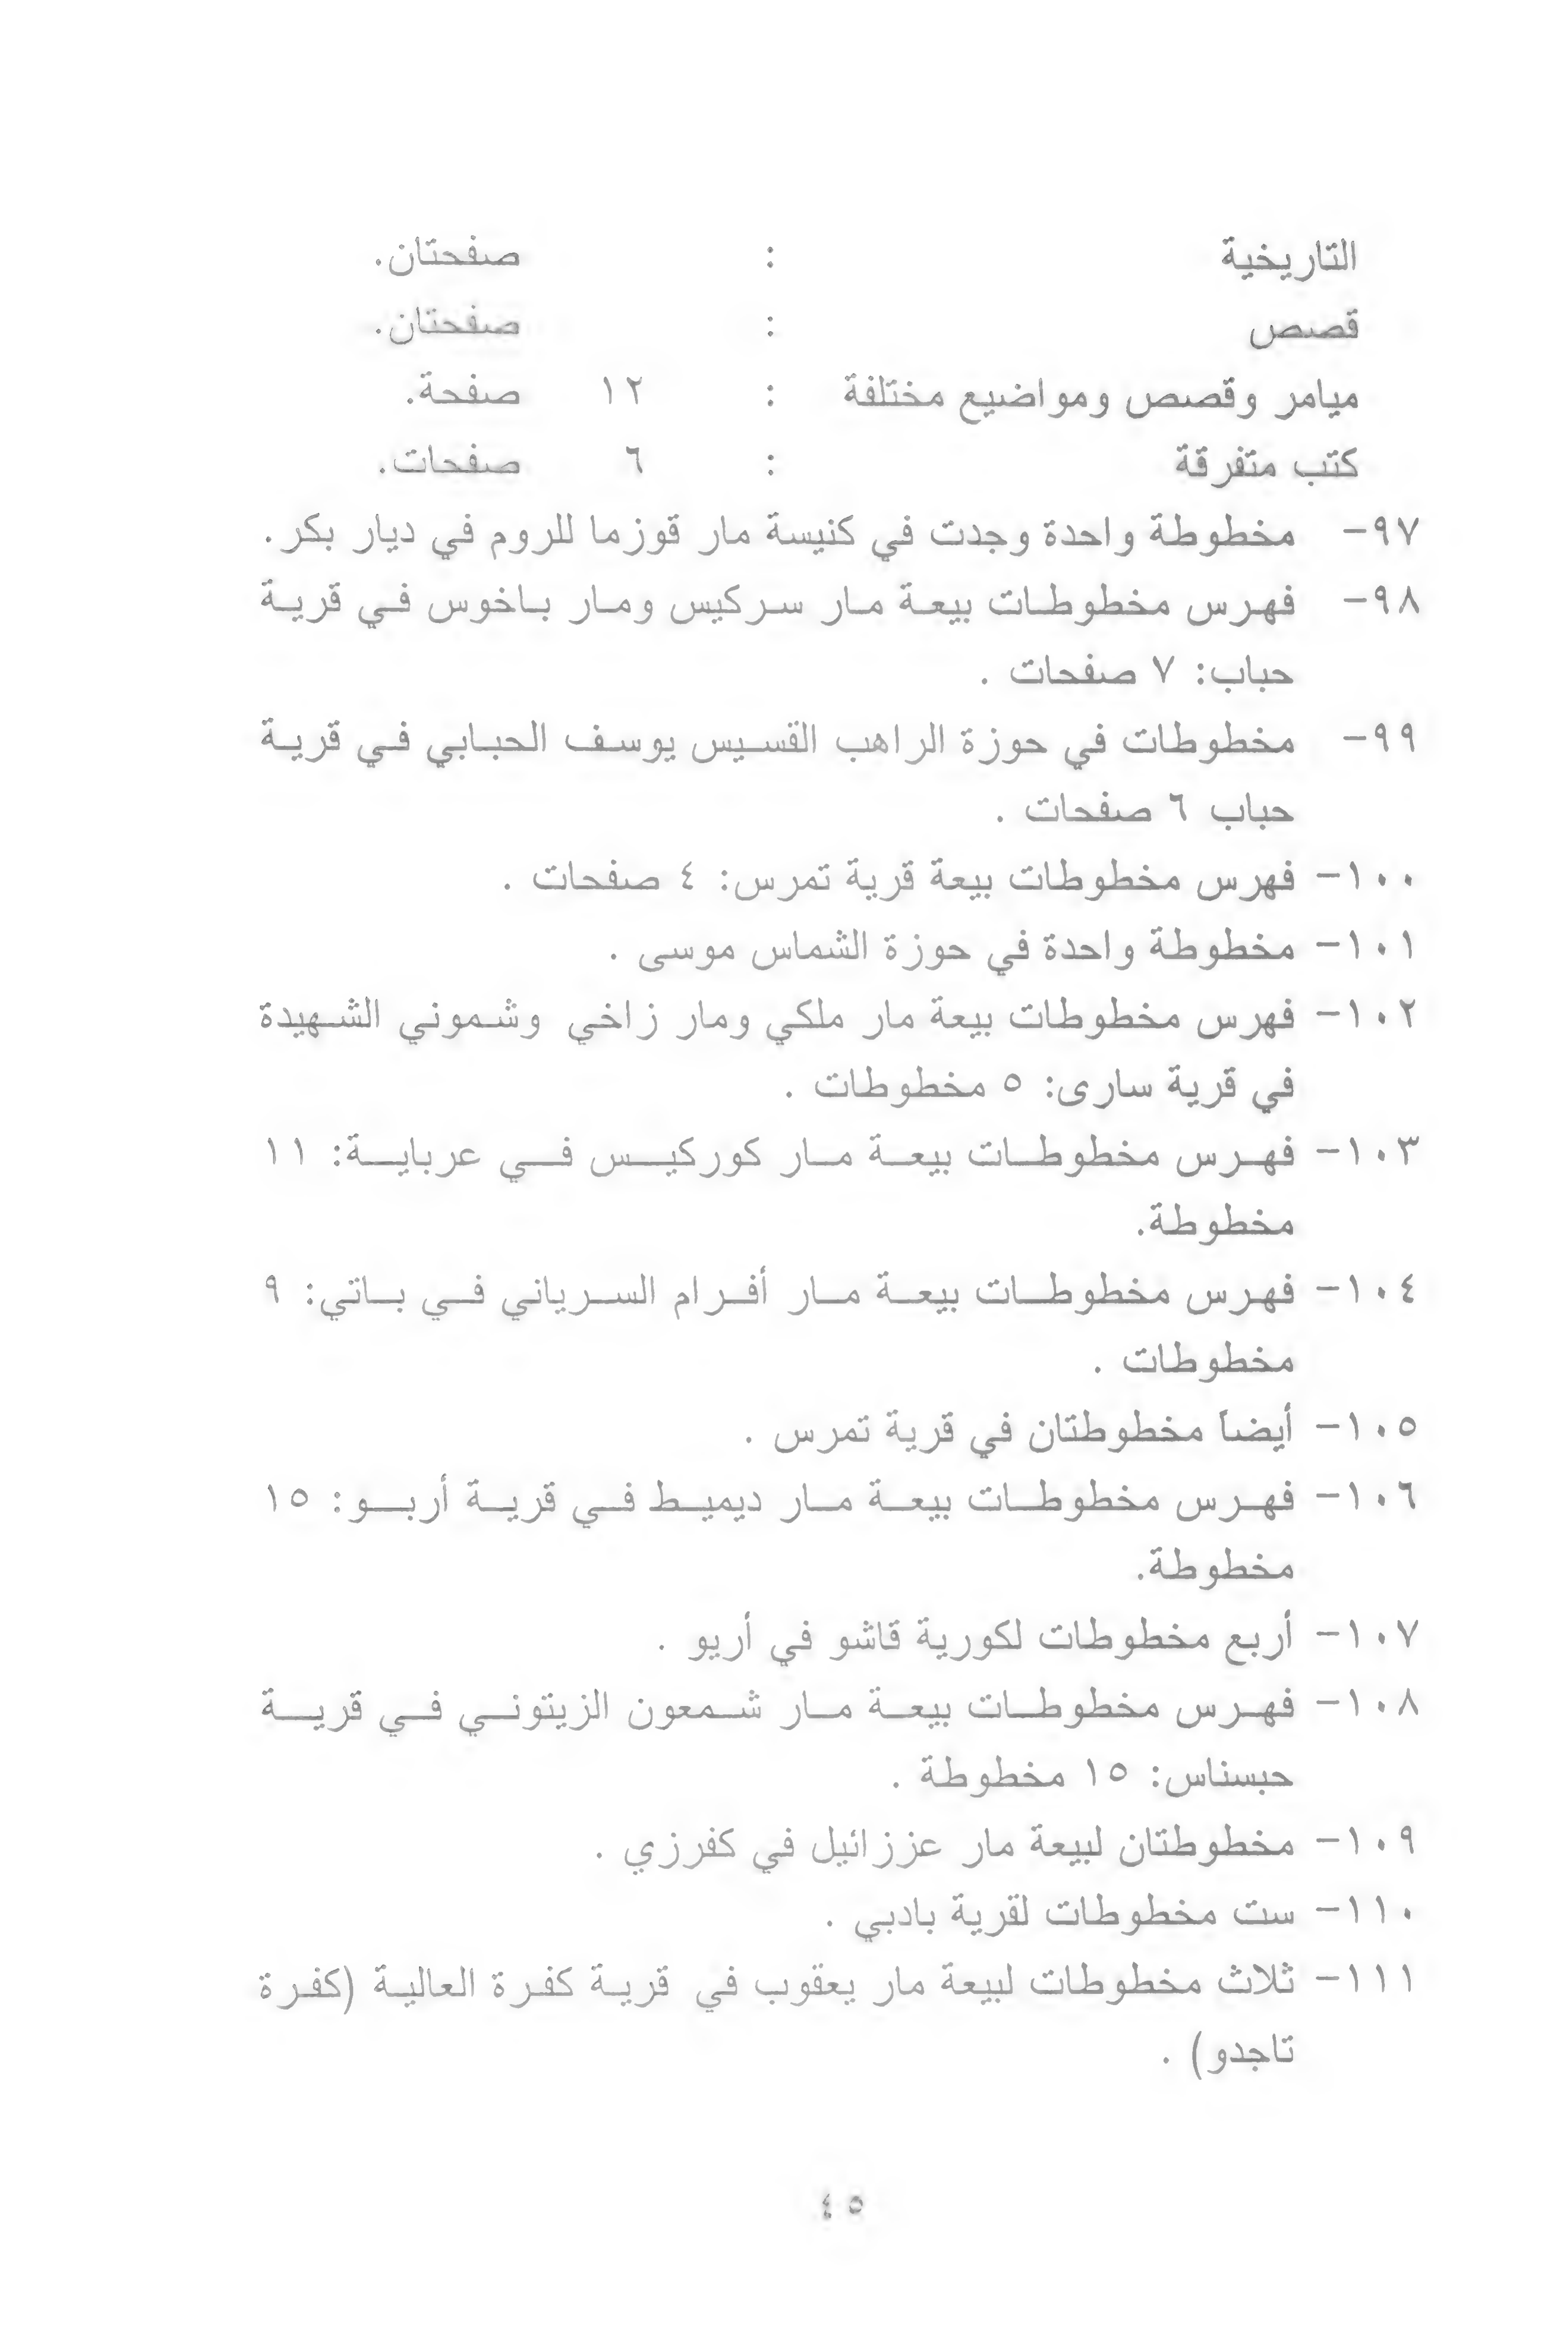 التاريخية : صفحتان.
قصص : صفحتان.
ميامر وقصص ومواضيع مختلفة : ١٢ صفحة.
كتب متفرقة : ٦ صفحات.
٩٧- مخطوطة واحدة وجدت في كنيسة مار قوزما للروم في ديار بكر.
٩٨- فهرس مخطوطات بيعة مار سركيس ومار باخوس في قرية
حباب: ٧ صفحات .
٩٩- مخطوطات في حوزة الراهب القسيس يوسف الحبابي في قرية
حباب ٦ صفحات .
١٠٠- فهرس مخطوطات بيعة قرية تمرس: ٤ صفحات .
١٠١- مخطوطة واحدة في حوزة الشماس موسى .
١٠٢- فهرس مخطوطات بيعة مار ملكي ومار زاخي وشموني الشهيدة
في قرية سارى: ٥ مخطوطات .
١٠٣- فهرس مخطوطات بيعة مار كوركيس في عرباية: ١١
مخطوطة.
١٠٤- فهرس مخطوطات بيعة مار أفرام السرياني في باتي: ٩
مخطوطات .
١٠٥- أيضاً مخطوطتان في قرية تمرس .
١٠٦- فهرس مخطوطات بيعة مار ديميط في قرية أربو: ١٥
مخطوطة.
١٠٧- أربع مخطوطات لكورية قاشو في أربو .
١٠٨- فهرس مخطوطات بيعة مار شمعون الزيتوني في قرية
حبسناس: ١٥ مخطوطة .
١٠٩- مخطوطتان لبيعة مار عززائيل في كفرزي .
١١٠- ست مخطوطات لقرية بادبي .
١١١- ثلاث مخطوطات لبيعة مار يعقوب في قرية كفرة العالية (كفرة
تاجدو) .
٤٥